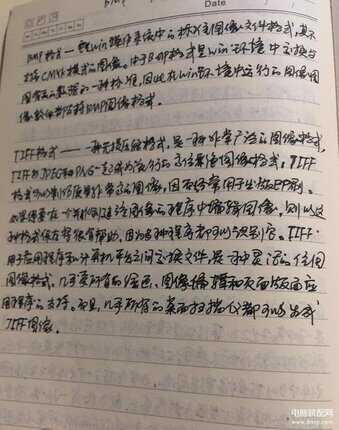 BMP格式 — 是Win操作系统中的标准图像文件格式,其不
支持CMYK模式的图像。由于BMP格式是Win环境中交换与
图有关的数据的一种标准,因此在Win环境中运行的图像图
像软件都支持BMP图像格式。
TIFF格式 —— 一种无损压缩格式,是一种非常广泛的图像格式,
TIFF与JPEG和PNG一起成为流行的高位彩色图像格式。TIFF
格式可以制作质量非常高的图像,因而经常用于出版印刷。
如果想要在一个非创建该图像的程序中编辑图像,则以这
种格式保存将很有帮助,因为多种程序都可以识别它。TIFF
用于应用程序和计算机平台之间交换文件,是一种灵活的位图
图像格式,几乎所有的绘画、图像编辑和页面版面应
用程序的支持。而且,几乎所有的桌面扫描仪都可以生成
TIFF图像。
电脑装配网
www.dnzp.com